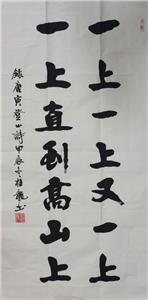 一上一上又一上
一上直到高山上
錄唐寅登山詩甲辰冬桂龍書